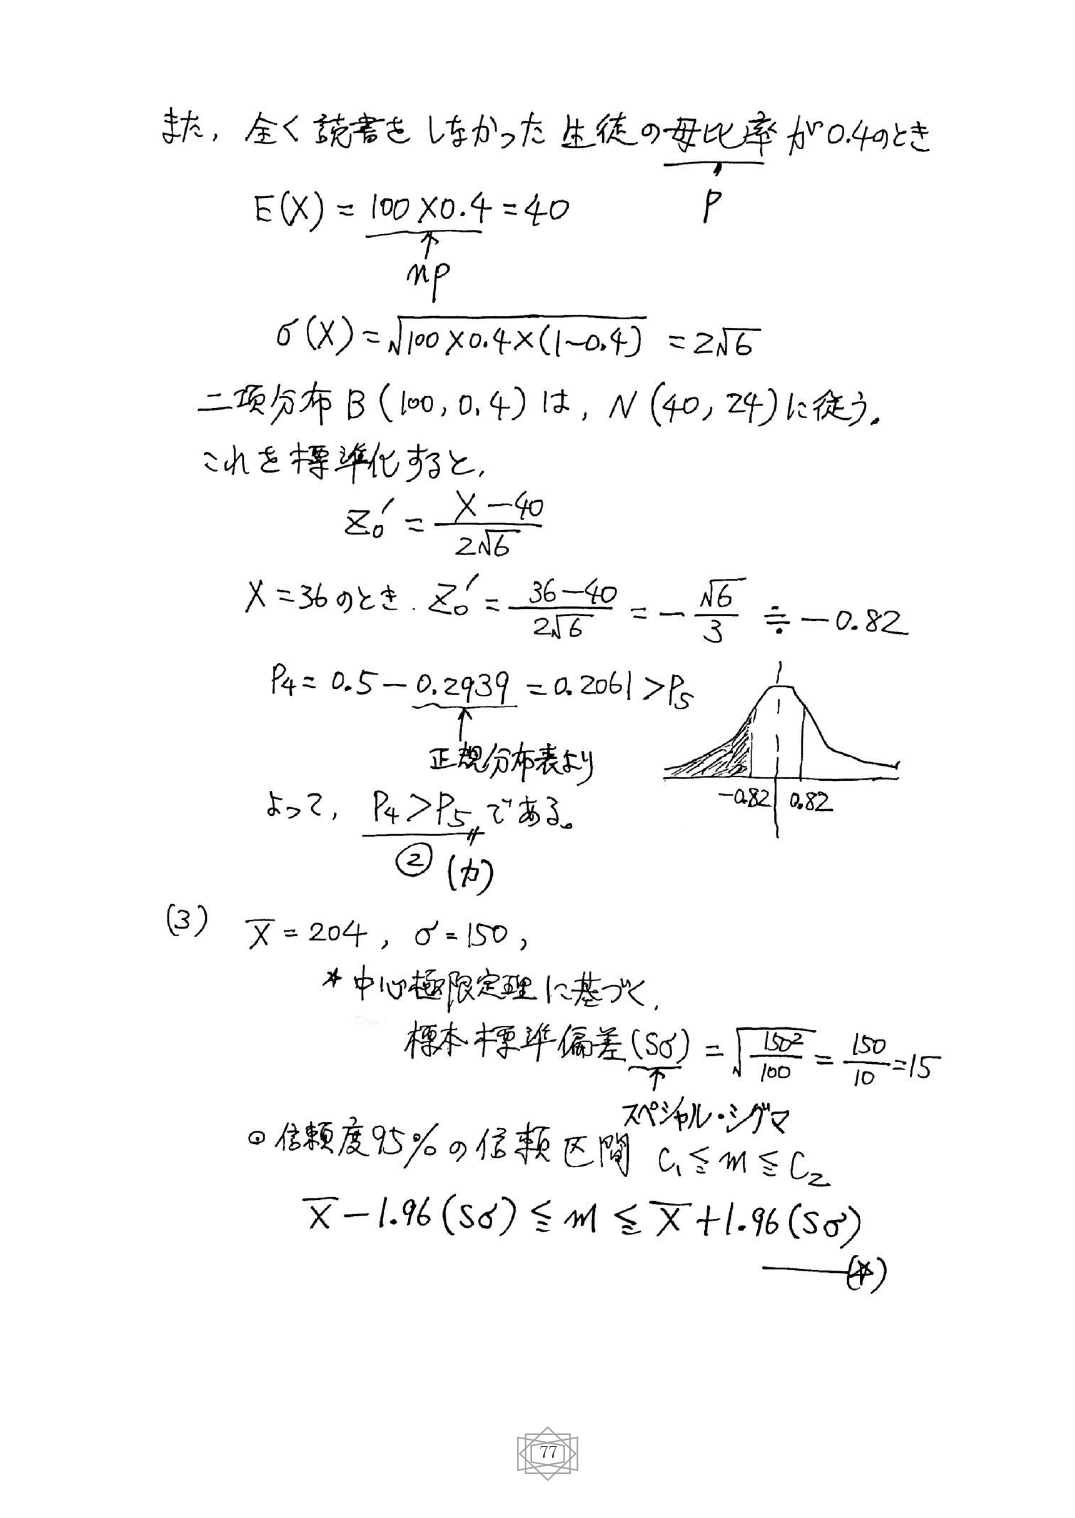 また, 全く読書をしなかった生徒の母比率が0.4のとき
p
E(X) = 100×0.4 = 40
↑
np
σ(X) = √100×0.4×(1-0.4) = 2√6
二項分布 B(100, 0.4) は, N(40, 24)に従う。
これを標準化すると,
Z₀′ = (X-40)/(2√6)
X=36のとき. Z₀′ = (36-40)/(2√6) = -√6/3 ≒ -0.82
P₄ = 0.5-0.2939 = 0.2061 > P₅
↑
正規分布表より
-0.82 0.82
よって, P₄>P₅である。
② (カ)
(3) X̄ = 204, σ=150,
* 中心極限定理に基づく,
標本標準偏差(Sσ) = √(150²/100) = 150/10 = 15
↑
スペシャル・シグマ
⊙ 信頼度95%の信頼区間 C₁ ≦ m ≦ C₂
X̄-1.96(Sσ) ≦ m ≦ X̄+1.96(Sσ)
——(*)
77